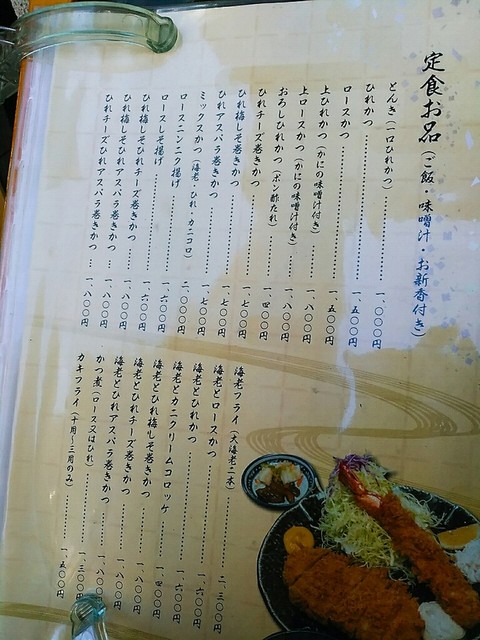 定食お品（ご飯・味噌汁・お新香付き）
とんき（一口ひれかつ）………一、〇〇〇円
ひれかつ………一、五〇〇円
ロースかつ………一、五〇〇円
上ひれかつ（かにの味噌汁付き）………一、八〇〇円
上ロースかつ（かにの味噌汁付き）………一、八〇〇円
おろしひれかつ（ポン酢たれ）………一、四〇〇円
ひれチーズ巻きかつ………一、七〇〇円
ひれ梅しそ巻きかつ………一、七〇〇円
ひれアスパラ巻きかつ………一、七〇〇円
ミックスかつ（海老・ひれ・カニコロ）………二、〇〇〇円
ロースニンニク揚げ………一、六〇〇円
ロースしそ揚げ………一、六〇〇円
ひれ梅しそひれチーズ巻きかつ………一、八〇〇円
ひれ梅しそひれアスパラ巻きかつ…一、八〇〇円
ひれチーズひれアスパラ巻きかつ…一、八〇〇円
海老フライ（大海老二本）………二、三〇〇円
海老とロースかつ………一、六〇〇円
海老とひれかつ………一、六〇〇円
海老とカニクリームコロッケ………一、四〇〇円
海老とひれ梅しそ巻きかつ………一、八〇〇円
海老とひれチーズ巻きかつ………一、八〇〇円
海老とひれアスパラ巻きかつ………一、八〇〇円
かつ煮（ロース又はひれ）………一、三〇〇円
カキフライ（十月〜三月のみ）………一、五〇〇円